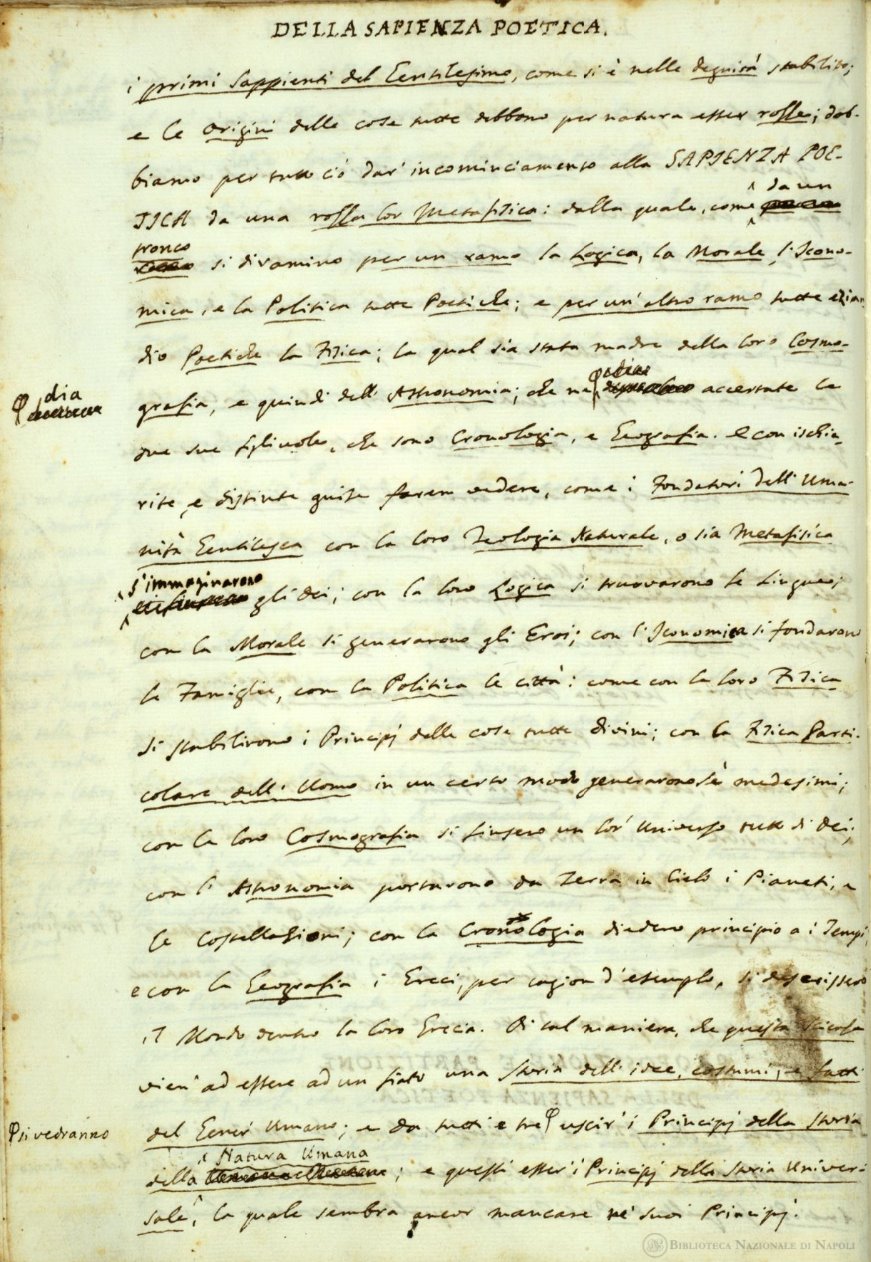 DELLA SAPIENZA POETICA.
i primi Sappienti del Gentilesimo, come si è nelle degnità stabilito;
e le origini delle cose tutte debbono per natura esser rosse; dob-
biamo per tutto ciò dar' incominciamento alla SAPIENZA POE-
TICA da una rossa lor Metafisica: dalla quale, come da un
tronco si diramino per un ramo la Logica, la Morale, l'Icono-
mica, e la Politica tutte Poetiche; e per un' altro ramo tutte ezian
dio Poetiche la Fisica; la qual sia stata madre della loro Cosmo-
dia
grafia, e quindi dell' Astronomia; che ne dia accertate le
due sue figliuole, che sono Cronologia, e Geografia. e con ischia-
rite, e distinte guise farem vedere, come i Fondatori dell' Uma-
nità Gentilesca con la loro Teologia Naturale, o sia Metafisica
s'immaginarono gli dei; con la loro Logica si truovarono le lingue;
con la Morale si generarono gli Eroi; con l'Iconomica si fondarono
le Famiglie, con la Politica le città: come con la loro Fisica
si stabilirono i Principj delle cose tutte divini; con la Fisica Parti-
colare dell' Uomo in un certo modo generarono sè medesimi;
con la loro Cosmografia si finsero un lor' Universo tutto di dei;
con l' Astronomia portarono da Terra in Cielo i Pianeti, e
le Costellazioni; con la Cronologia diedero principio a i Tempi
e con la Geografia i Greci, per cagion d'esemplo, si descrissero
il Mondo dentro la loro Grecia. Di tal maniera, che questa Scienza
vien' ad essere ad un fiato una Storia dell' idee, costumi, e fatti
si vedranno
del Gener' Umano; e da tutti e tre uscir' i Principj della Storia
della Natura Umana; e questi esser' i Principj della Storia Univer-
sale, la quale sembra ancor mancare ne' suoi Principj.
BIBLIOTECA NAZIONALE DI NAPOLI